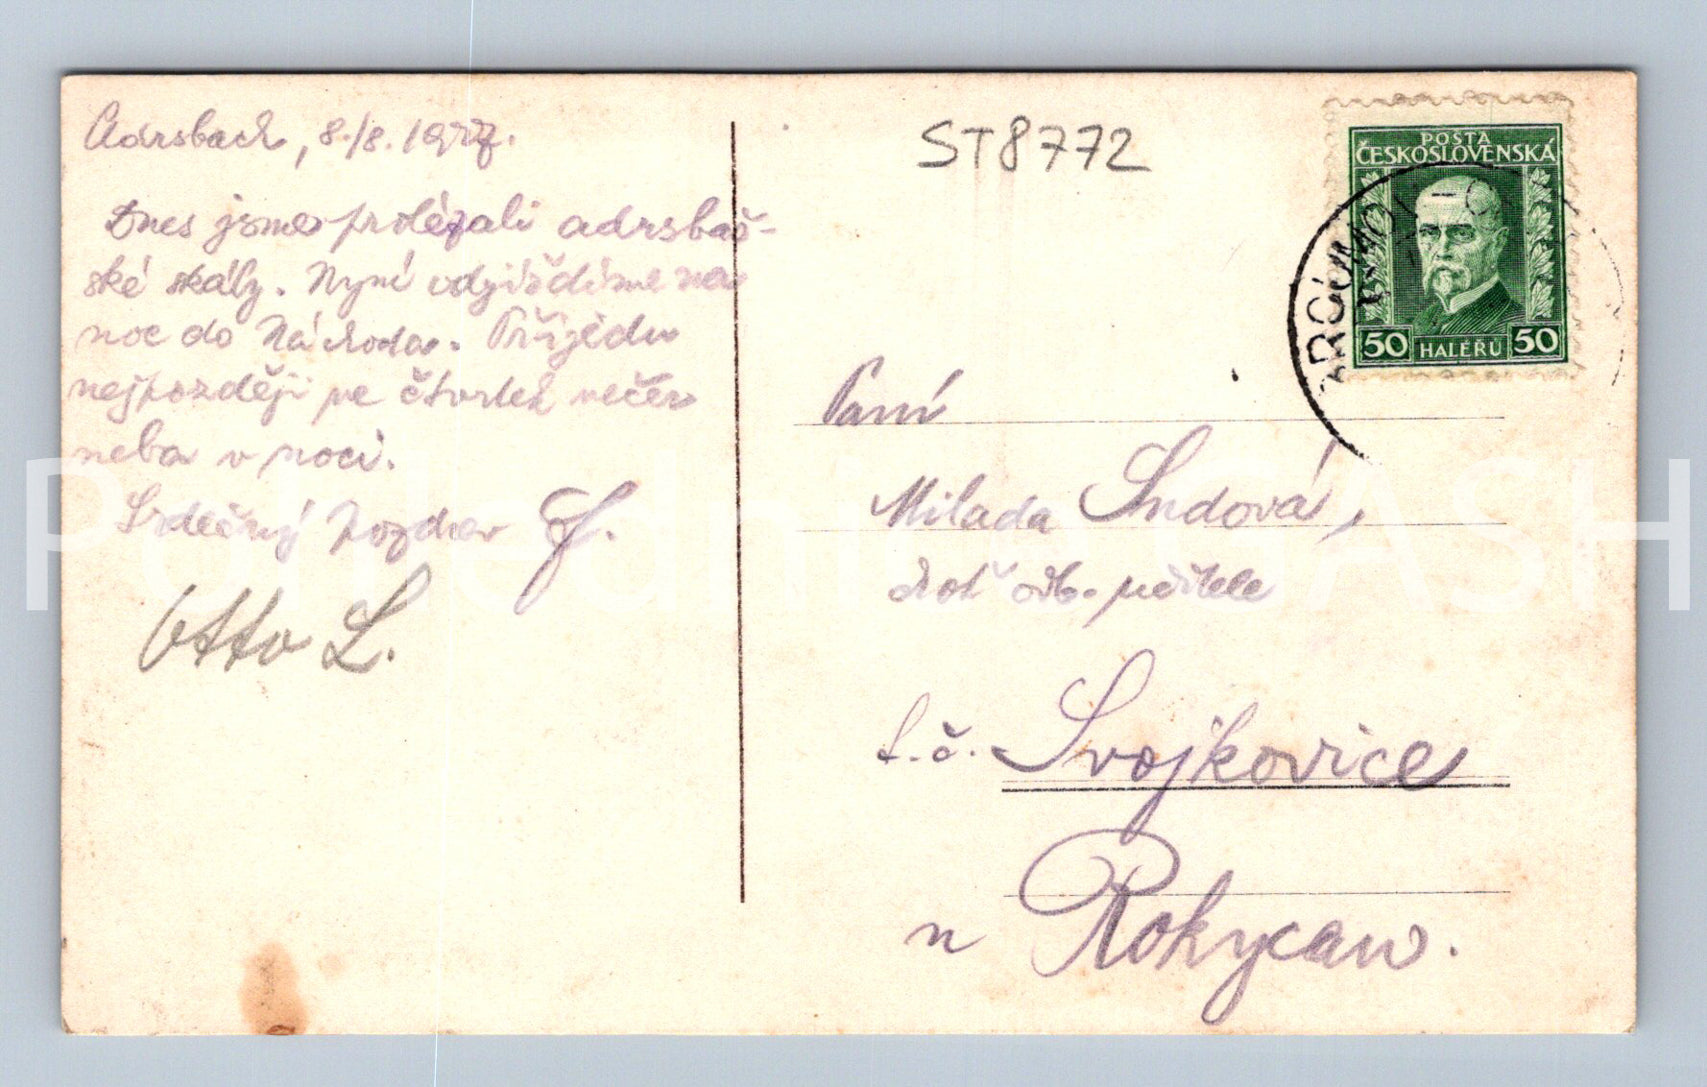 Adrsbach, 8./8. 1927.
Dnes jsme prolézali adrsbaš-
ské skály. Nyní odjíždíme na
noc do Náchoda. Přijedu
nejpozději ve čtvrtek večer
neba v noci.
Srdečný pozdrav J.
Otto L.
ST8772
POŠTA
ČESKOSLOVENSKÁ
50 HALÉŘŮ 50
Paní
Milada Sudová,
choť odb. učitele
č.
Svojkovice
u Rokycan.
Pohlednice GASH